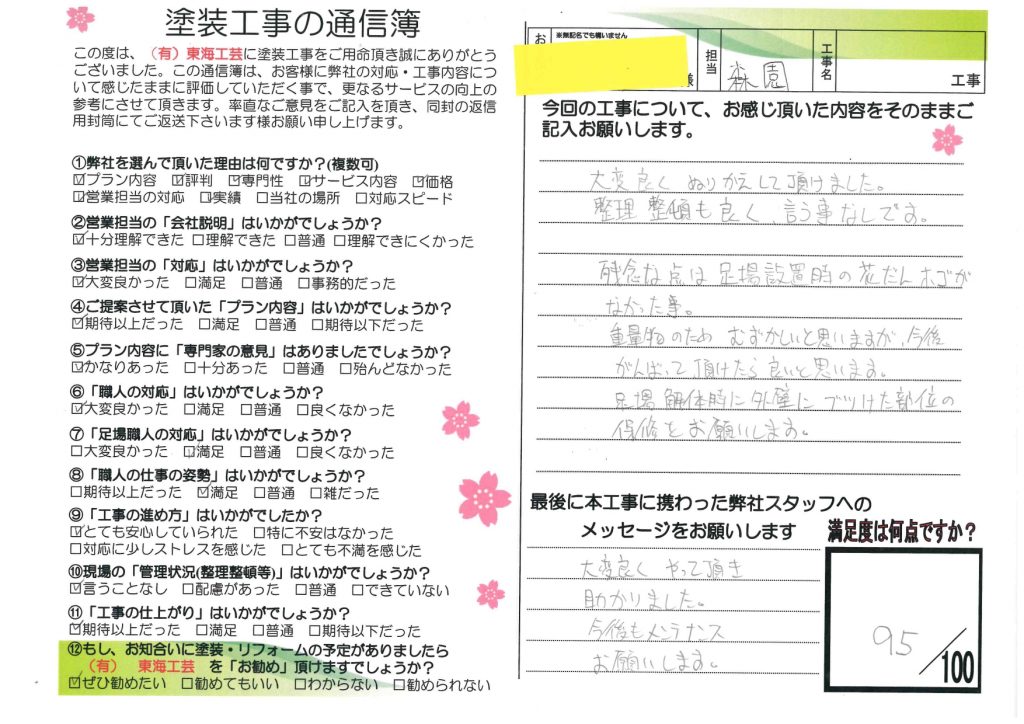 塗装工事の通信簿
この度は、（有）東海工芸に塗装工事をご用命頂き誠にありがとう
ございました。この通信簿は、お客様に弊社の対応・工事内容につ
いて感じたままに評価していただく事で、更なるサービスの向上の
参考にさせて頂きます。率直なご意見をご記入を頂き、同封の返信
用封筒にてご返送下さいます様お願い申し上げます。
①弊社を選んで頂いた理由は何ですか？(複数可)
☑プラン内容 ☑評判 ☑専門性 ☑サービス内容 ☑価格
☑営業担当の対応 ☑実績 □当社の場所 □対応スピード
②営業担当の「会社説明」はいかがでしょうか？
☑十分理解できた □理解できた □普通 □理解できにくかった
③営業担当の「対応」はいかがでしょうか？
☑大変良かった □満足 □普通 □事務的だった
④ご提案させて頂いた「プラン内容」はいかがでしょうか？
☑期待以上だった □満足 □普通 □期待以下だった
⑤プラン内容に「専門家の意見」はありましたでしょうか？
☑かなりあった □十分あった □普通 □殆んどなかった
⑥「職人の対応」はいかがでしょうか？
☑大変良かった □満足 □普通 □良くなかった
⑦「足場職人の対応」はいかがでしょうか？
□大変良かった ☑満足 □普通 □良くなかった
⑧「職人の仕事の姿勢」はいかがでしょうか？
□期待以上だった ☑満足 □普通 □雑だった
⑨「工事の進め方」はいかがでしたか？
☑とても安心していられた □特に不安はなかった
□対応に少しストレスを感じた □とても不満を感じた
⑩現場の「管理状況(整理整頓等)」はいかがでしょうか？
☑言うことなし □配慮があった □普通 □できていない
⑪「工事の仕上がり」はいかがでしょうか？
☑期待以上だった □満足 □普通 □期待以下だった
⑫もし、お知合いに塗装・リフォームの予定がありましたら
（有） 東海工芸 を「お勧め」頂けますでしょうか？
☑ぜひ勧めたい □勧めてもいい □わからない □勧められない
お ※無記名でも構いません 様 担当 森園 工事名 工事
今回の工事について、お感じ頂いた内容をそのままご
記入お願いします。
大変良く ぬりかえして頂けました。
整理 整頓も良く、言う事なしです。
残念な点は足場設置時の花だんホゴが
なかった事。
重量物のため むずかしいと思いますが、今後
がんばって頂けたら良いと思います。
足場 解体時に外壁にブツけた部位の
保修をお願いします。
最後に本工事に携わった弊社スタッフへの
メッセージをお願いします
満足度は何点ですか？
大変良く やって頂き
助かりました。
今後もメンテナンス
お願いします。
95/100